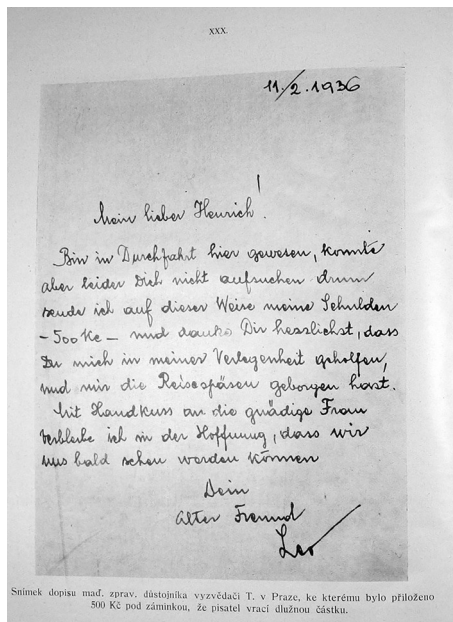 XXX.
11./2.1936
Mein lieber Henrich!
Bin in Durchfahrt hier gewesen, konnte
aber leider Dich nicht aufsuchen drum
sende ich auf dieser Weise meine Schulden
- 500 Kc - und danke Dir herslichst, dass
Du mich in meiner Verlegenheit geholfen,
und mir die Reisespäsen geborgen hast.
Mit Handkuss an die gnädige Frau
verbleibe ich in der Hoffnung, dass wir
uns bald sehen werden können
Dein
alter Freund
Leo
Snímek dopisu maď. zprav. důstojníka vyzvědači T. v Praze, ke kterému bylo přiloženo
500 Kč pod záminkou, že pisatel vrací dlužnou částku.